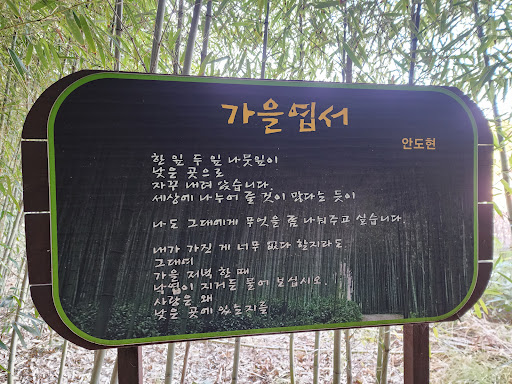 가을엽서
안도현
한 잎 두 잎 나뭇잎이
낮은 곳으로
자꾸 내려 앉습니다.
세상에 나누어 줄 것이 많다는 듯이
나도 그대에게 무엇을 좀 나눠주고 싶습니다.
내가 가진 게 너무 없다 할지라도
그대여
가을 저녁 한 때
낙엽이 지거든 물어 보십시오.
사랑은 왜
낮은 곳에 있는지를